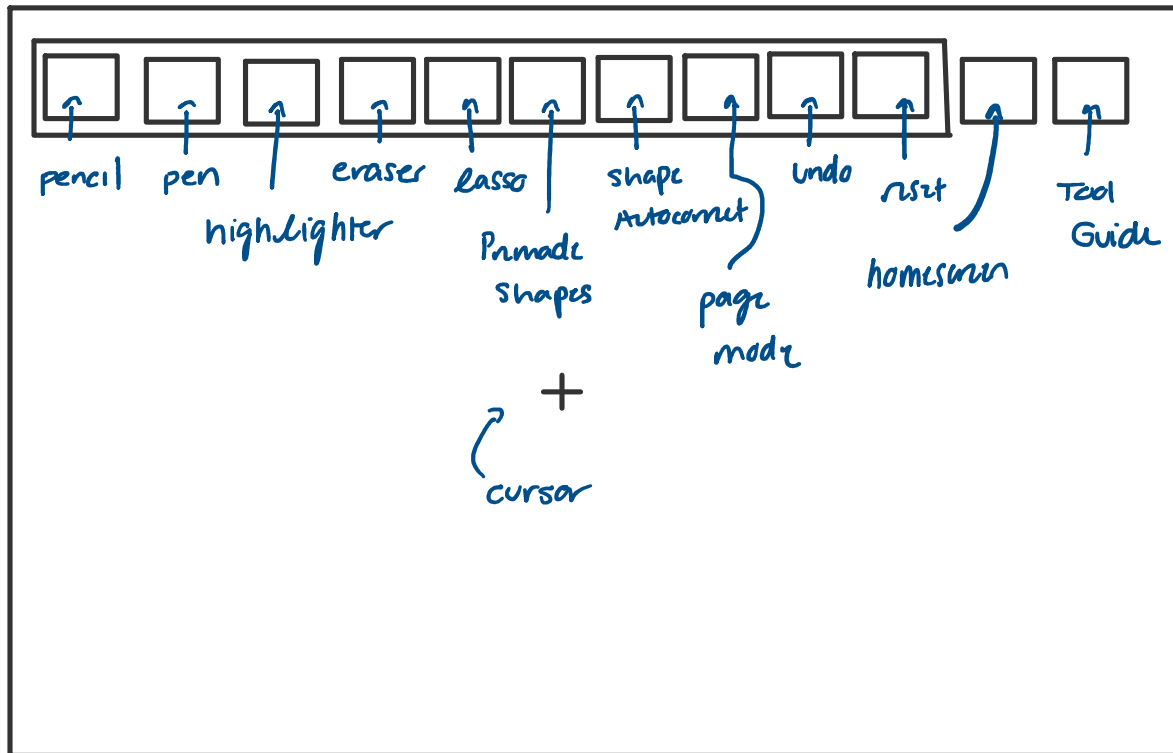 pencil
pen
highlighter
eraser
lasso
Premade
Shapes
shape
Autocorrect
page
mode
undo
reset
homescreen
Tool
Guide
cursor